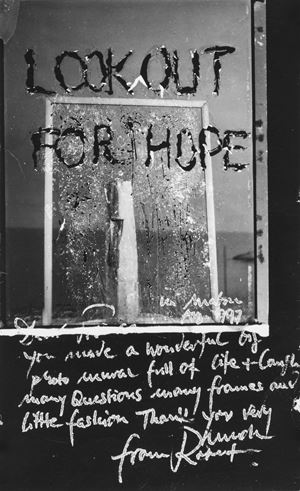 LOOK OUT
FOR HOPE
in Mabou
Dear
you make a wonderful big
photo mural full of life +
many Questions many frames and
little fashion Thank you very
much
from Robert